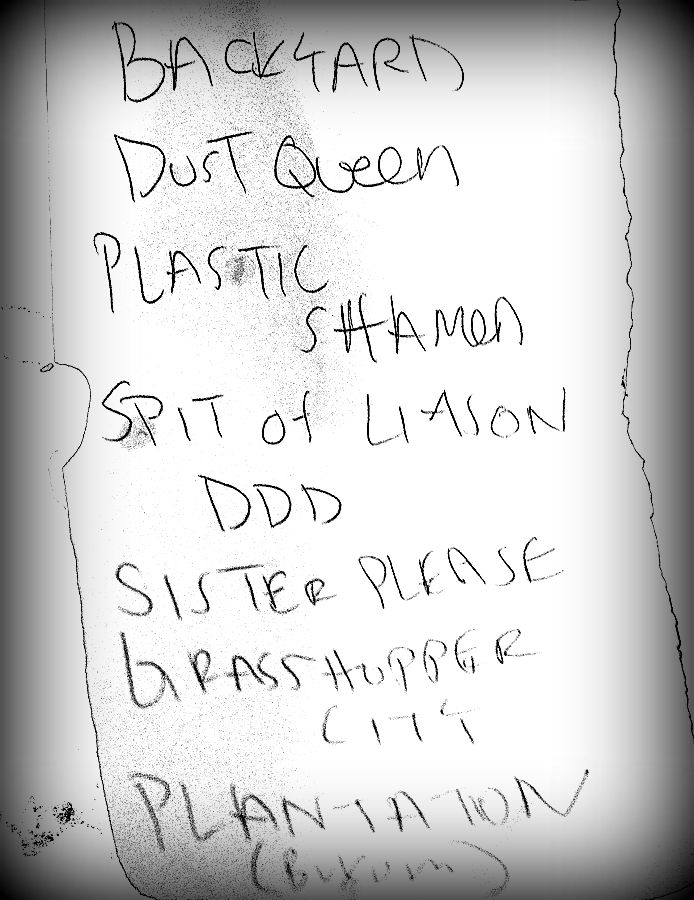 BACKYARD
DUST Queen
PLASTIC
SHAMen
SPIT of LIASON
DDD
SISTER PLEASE
GRASSHOPPER
CITY
PLANTATION